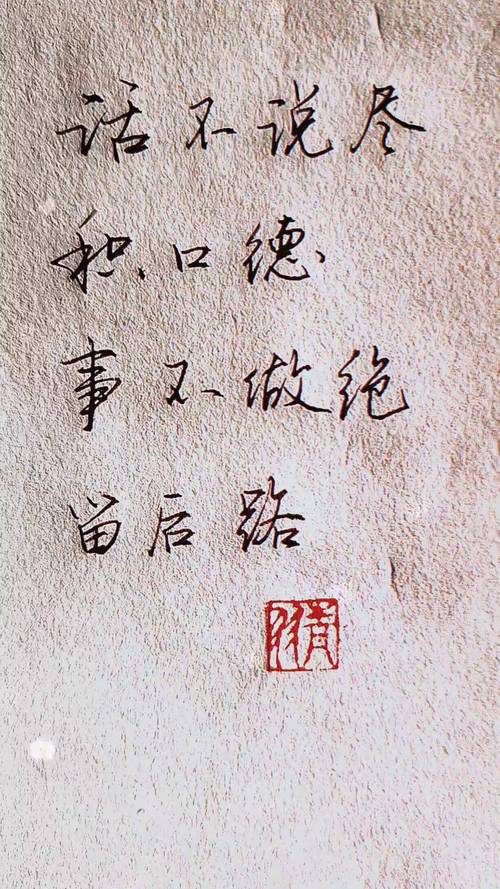 话不说尽
积口德
事不做绝
留后路